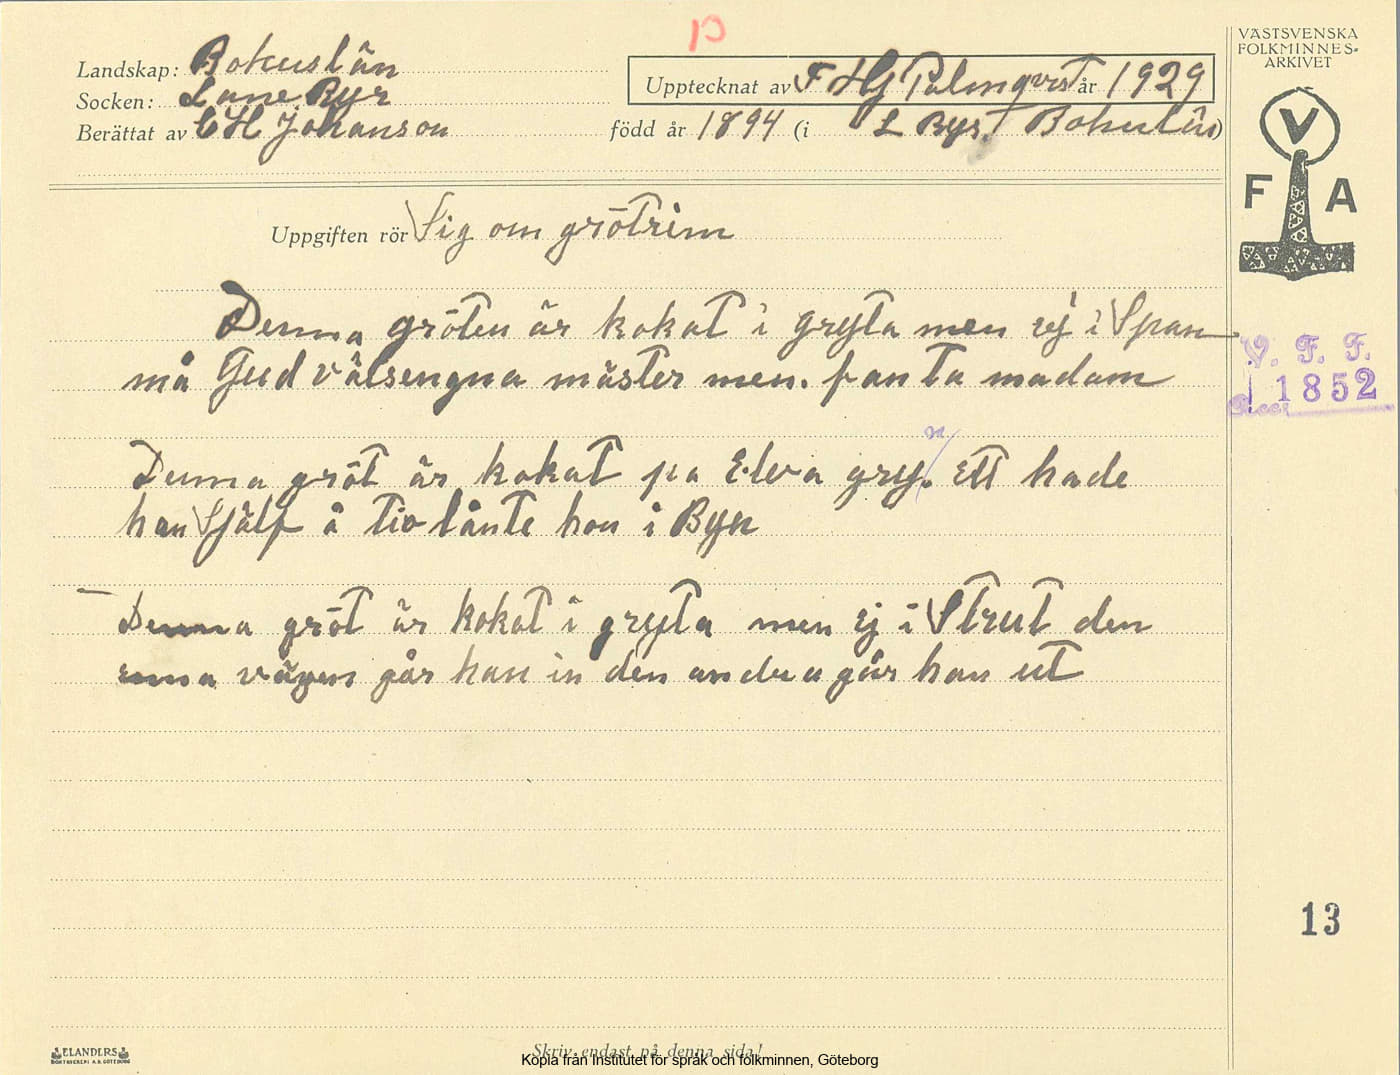 p
VÄSTSVENSKA
FOLKMINNES-
ARKIVET
Landskap: Bohuslän
Upptecknat av F HG Palmqvist år 1929
Socken: Lane Ryr
Berättat av CH Johanson född år 1894 (i L Ryr Bohuslän)
V
F A
Uppgiften rör Sig om grötrim
Denna gröten är kokat i gryta men ej i Span
må Gud välsengna mäster men. fanta madam
V. F. F.
1852
Denna gröt är kokat pa Elva gry. Ett hade
han Sjálf å tio lånte hon i Byn
Denna gröt är kokat i gryta men ej i Strut den
enna vägen går han in den andra går han ut
13
ELANDERS
BOKTRYCKERI A.B. GÖTEBORG
Skriv endast på denna sida!
Kopia från Institutet för språk och folkminnen, Göteborg